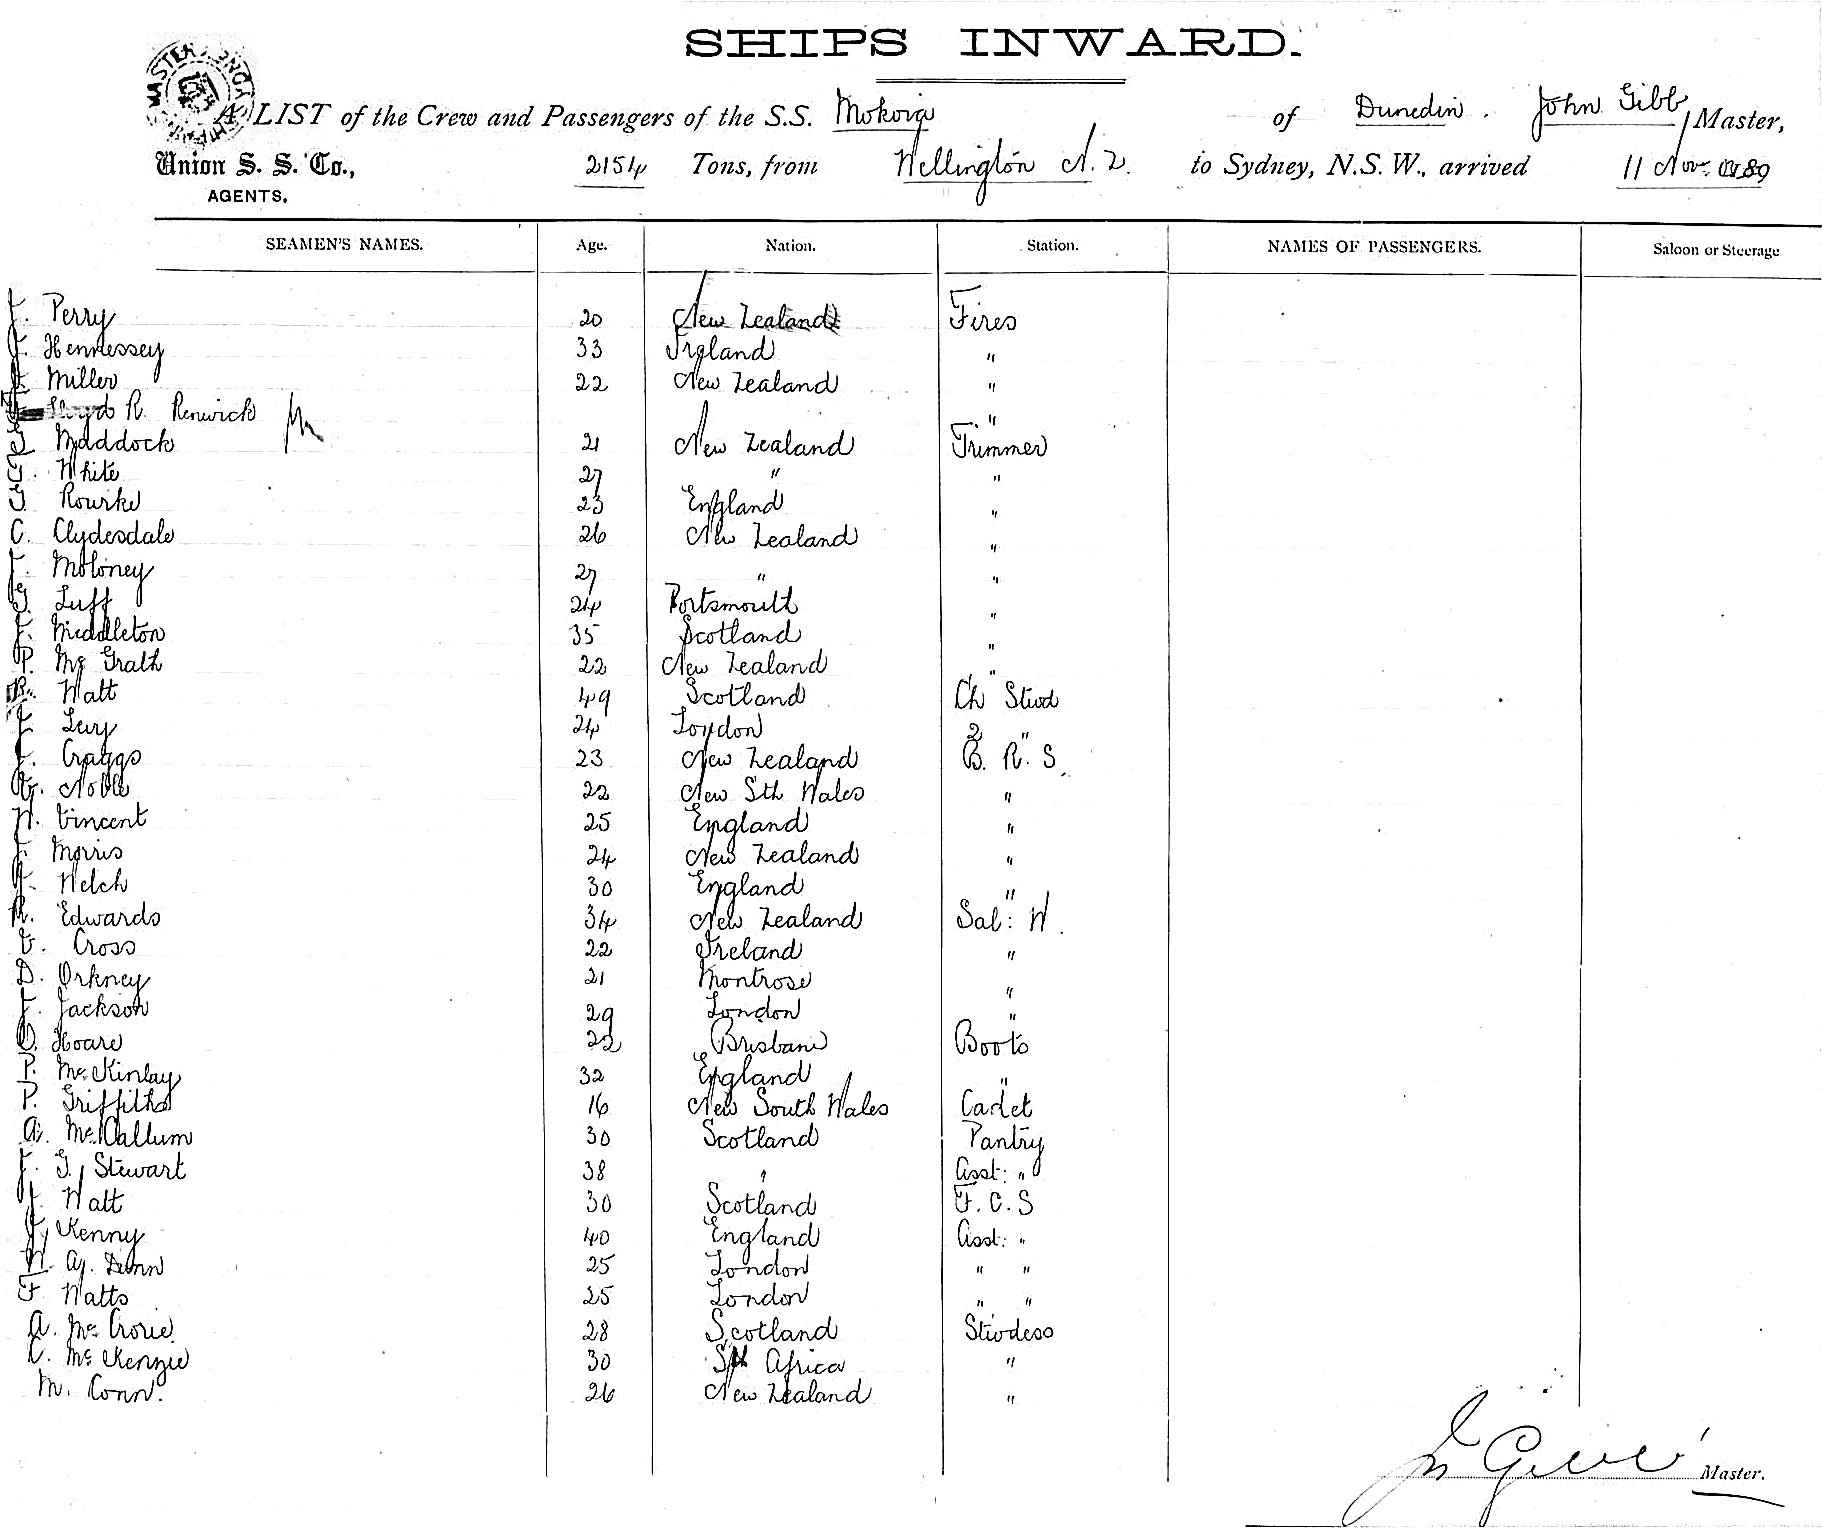 SHIPS INWARD.
A LIST of the Crew and Passengers of the S.S. Mokoia of Dunedin. John Gibb, Master,
Union S. S. Co., 2154 Tons, from Wellington N. Z. to Sydney, N.S.W., arrived 11 Nov.
AGENTS.
SEAMEN'S NAMES. Age. Nation. Station. NAMES OF PASSENGERS. Saloon or Steerage
J. Perry 20 New Zealand Fires
Hennessey 33 Ireland "
Miller 22 New Zealand "
R. Renwick "
Maddock 21 New Zealand Trimmer
White 27 " "
Rourke 23 England "
C. Clydesdale 26 New Zealand "
J. Moloney 27 " "
G. Luff 24 Portsmouth "
J. Middleton 35 Scotland "
P. Mc Grath 22 New Zealand "
Watt 49 Scotland Ch Stwd
J. Levy 24 London 2 "
J. Craggs 23 New Zealand B. R. S.
G. Noble 22 New Sth Wales "
W. Vincent 25 England "
J. Morris 24 New Zealand "
Welch 30 England "
R. Edwards 34 New Zealand Sal: W.
V. Cross 22 Ireland "
D. Orkney 21 Montrose "
J. Jackson 29 London "
O. Hoare 22 Brisbane Boots
P. Mc Kinlay 32 England "
P. Griffiths 16 New South Wales Cadet
A. Mc Callum 30 Scotland Pantry
J. G. Stewart 38 " Asst: "
J. Watt 30 Scotland F. C. S
J. Kenny 40 England Asst: "
W. Dunn 25 London " "
F. Watts 25 London " "
A. Mc Crorie 28 Scotland Stwdess
C. Mc Kenzie 30 Sth Africa "
M. Conn. 26 New Zealand "
Jn Gibb Master.